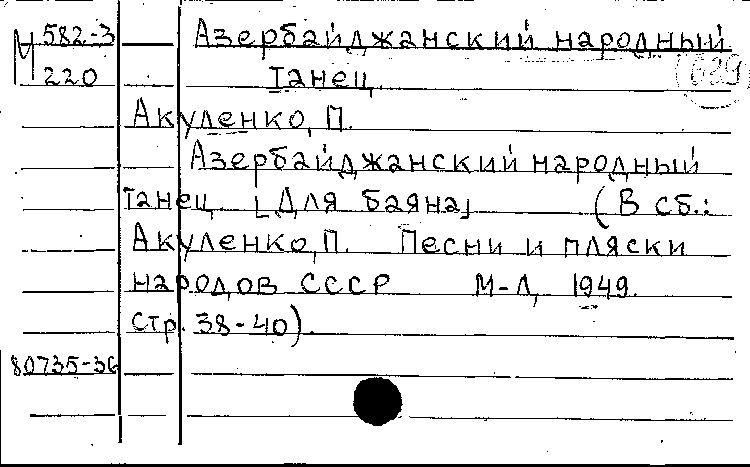 М 582-3 Азербайджанский народный
220 танец
Акуленко, П.
Азербайджанский народный
танец [Для баяна] (В сб.:
Акуленко, П. Песни и пляски
народов СССР М-Л, 1949.
стр. 38-40).
80735-36